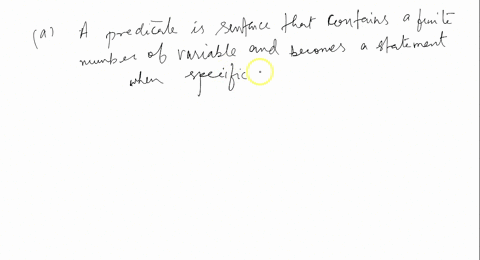 (a) A predicate is sentence that contains a finite
number of variable and becomes a statement
when specific